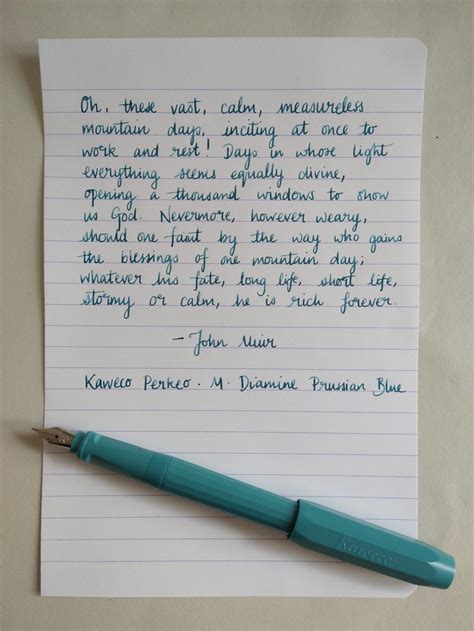 Oh, these vast, calm, measureless
mountain days, inciting at once to
work and rest! Days in whose light
everything seems equally divine,
opening a thousand windows to show
us God. Nevermore, however weary,
should one faint by the way who gains
the blessings of one mountain day;
whatever his fate, long life, short life,
stormy or calm, he is rich forever.
- John Muir
Kaweco Perkeo. M. Diamine Prussian Blue
Kaweco